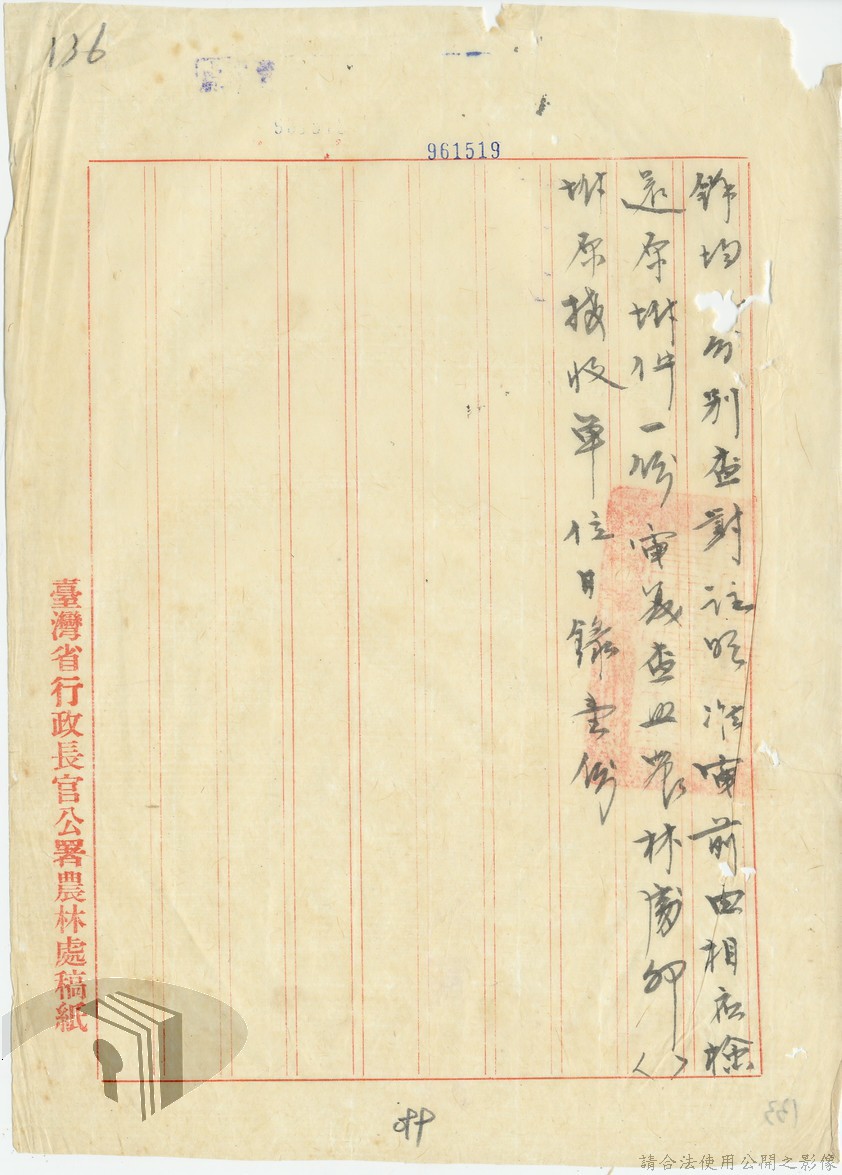 136
961519
飾均 分别查對註明准電前由相應檢
還原附件一份電复查照農林處卯( )
附原接收單位目錄壹份
臺灣省行政長官公署農林處稿紙
133
請合法使用公開之影像